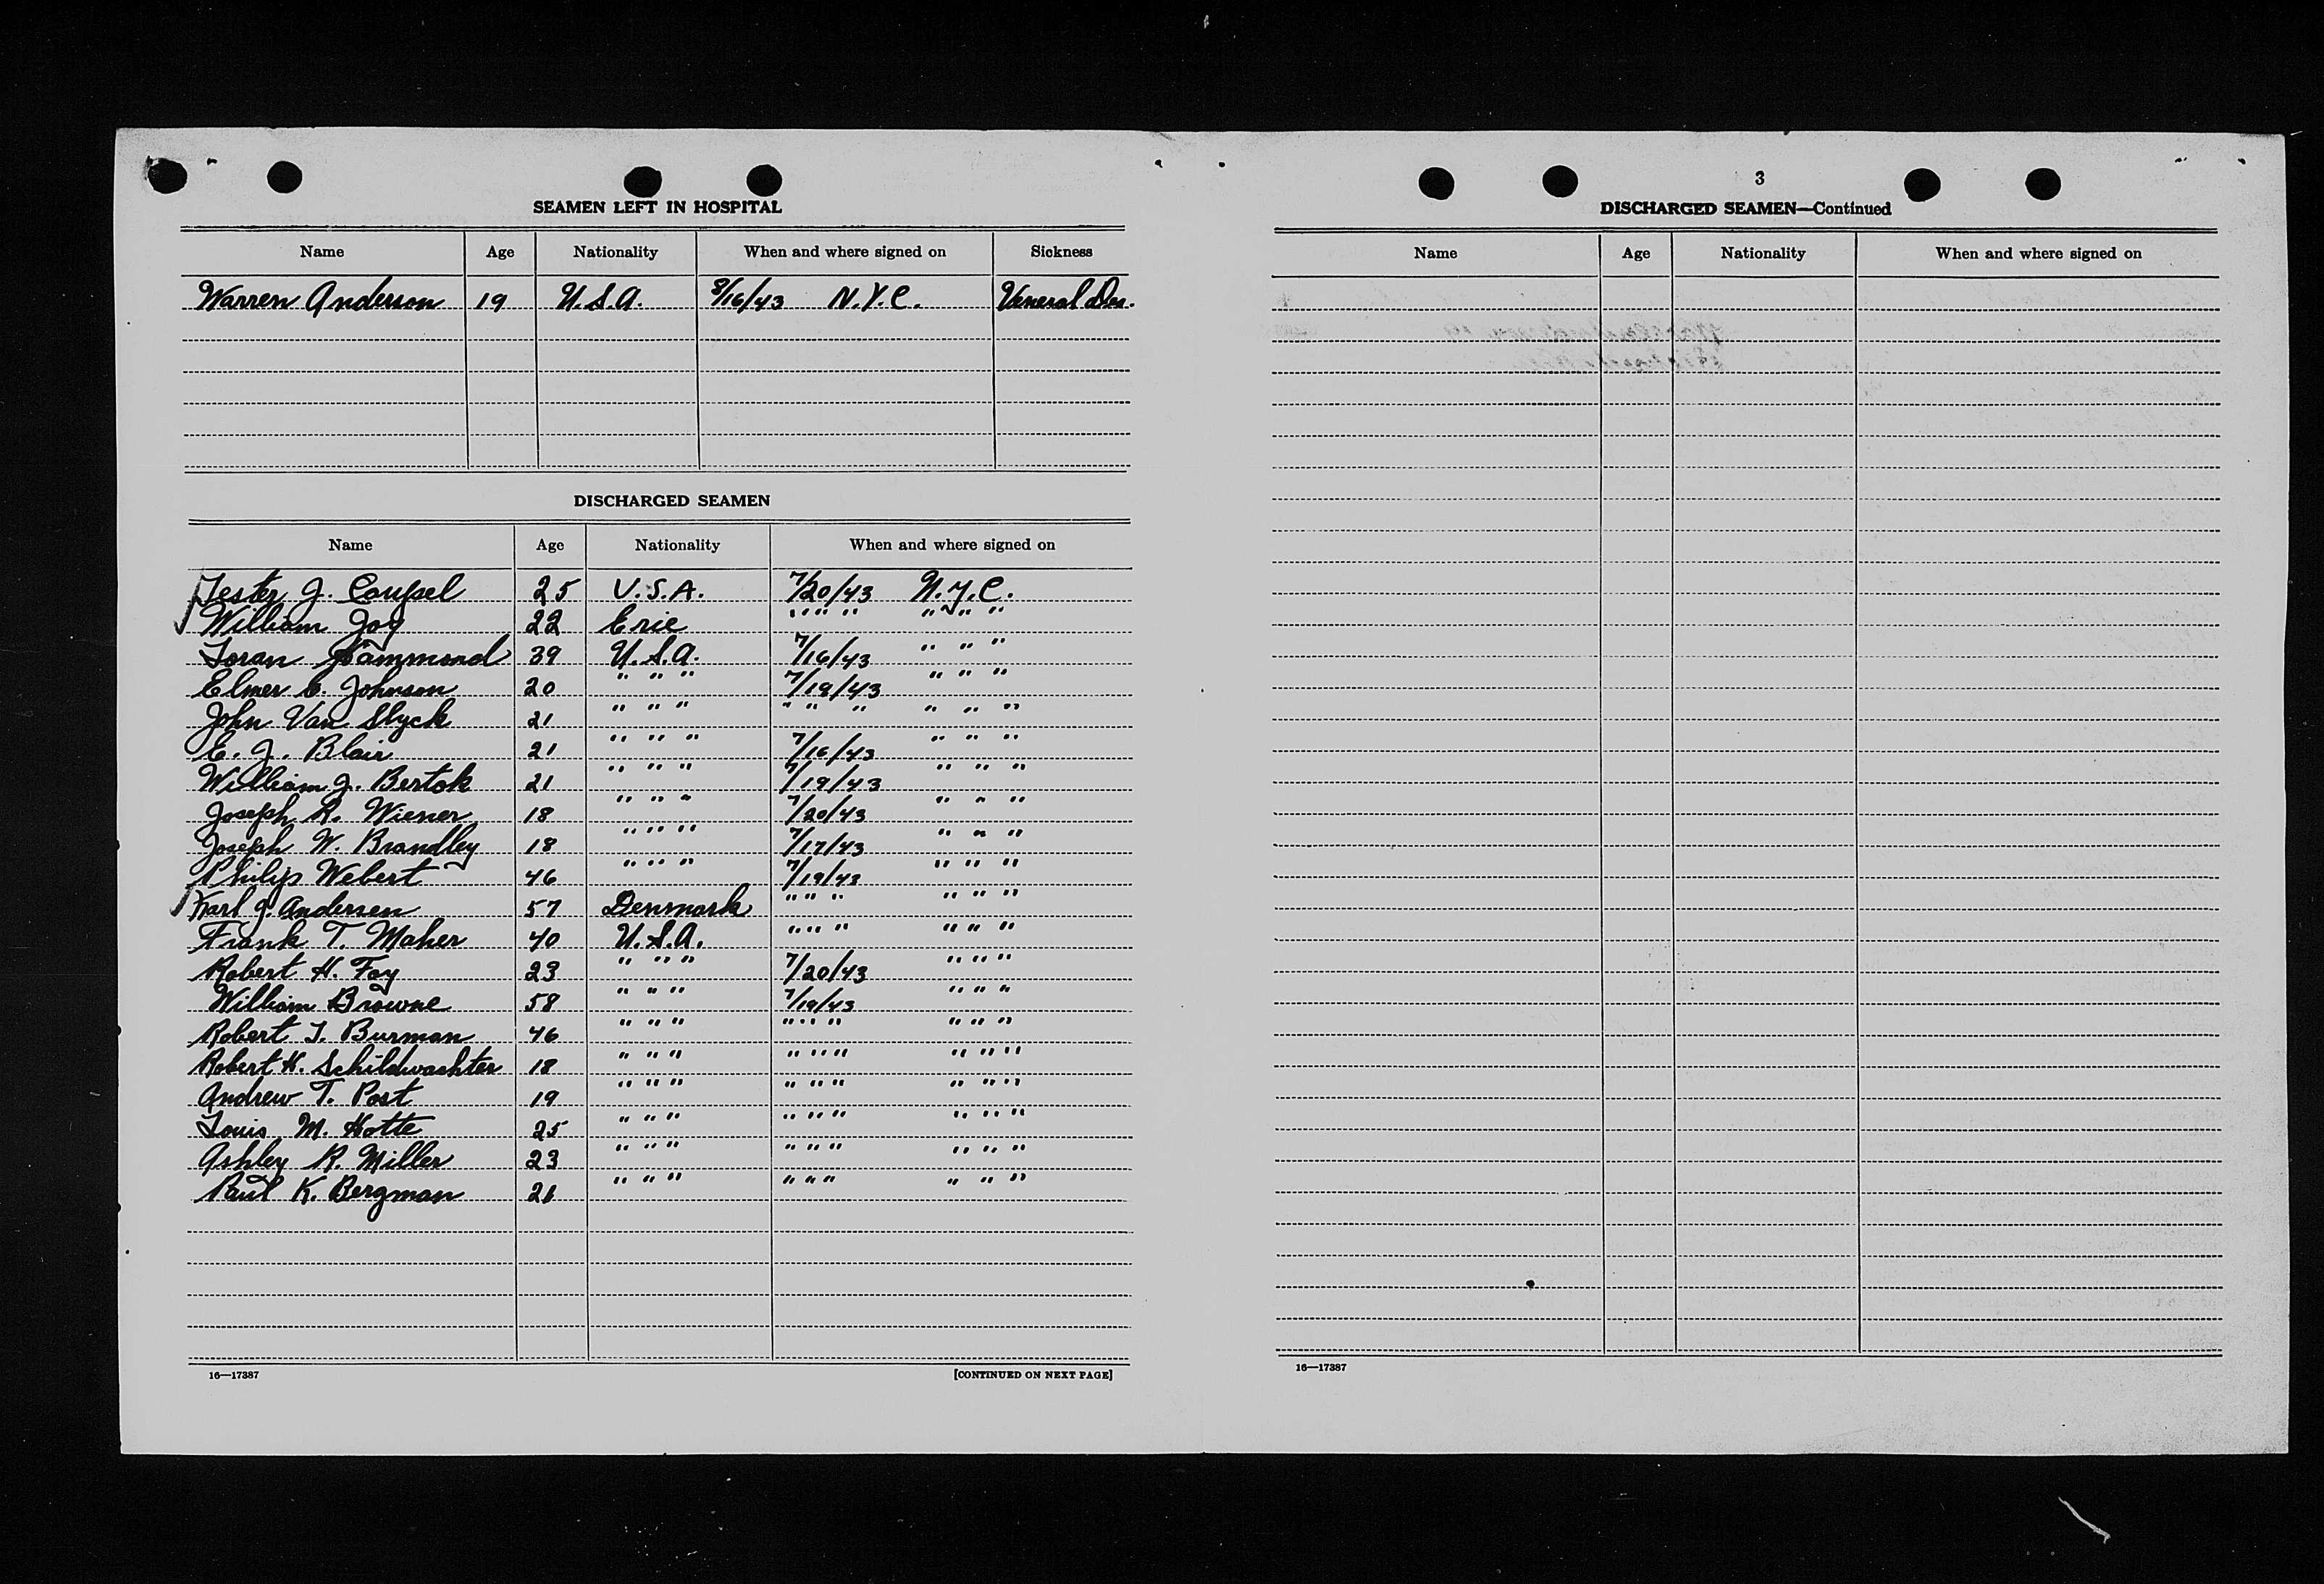 SEAMEN LEFT IN HOSPITAL
Name Age Nationality When and where signed on Sickness
Warren Anderson 19 U.S.A. 8/16/43 N.Y.C. Veneral Des.
DISCHARGED SEAMEN
Name Age Nationality When and where signed on
Lester J. 25 U.S.A. 7/20/43 N.Y.C.
William Joy 22 Erie " " " " " "
Loran Hammond 39 U.S.A. 7/16/43 " " "
Elmer C. Johnson 20 " " " 7/19/43 " " "
John Van Slyck 21 " " " " " " " " "
E. J. Blair 21 " " " 7/16/43 " " "
William J. Bertok 21 " " " 7/19/43 " " "
Joseph R. Wiener 18 " " " 7/20/43 " " "
Joseph W. Brandley 18 " " " 7/17/43 " " "
Philip Webert 46 " " " 7/19/43 " " "
Karl J. Andersen 57 Denmark " " " " " "
Frank T. Maher 40 U.S.A. " " " " " "
Robert H. Foy 23 " " " 7/20/43 " " "
William Browne 58 " " " 7/19/43 " " "
Robert J. Burman 46 " " " " " " " " "
Robert H. Schildwachter 18 " " " " " " " " "
Andrew T. Post 19 " " " " " " " " "
Louis M. Hotte 25 " " " " " " " " "
Ashley R. Miller 23 " " " " " " " " "
Paul K. Bergman 21 " " " " " " " " "
16—17387 [CONTINUED ON NEXT PAGE]
3
DISCHARGED SEAMEN—Continued
Name Age Nationality When and where signed on
16—17387